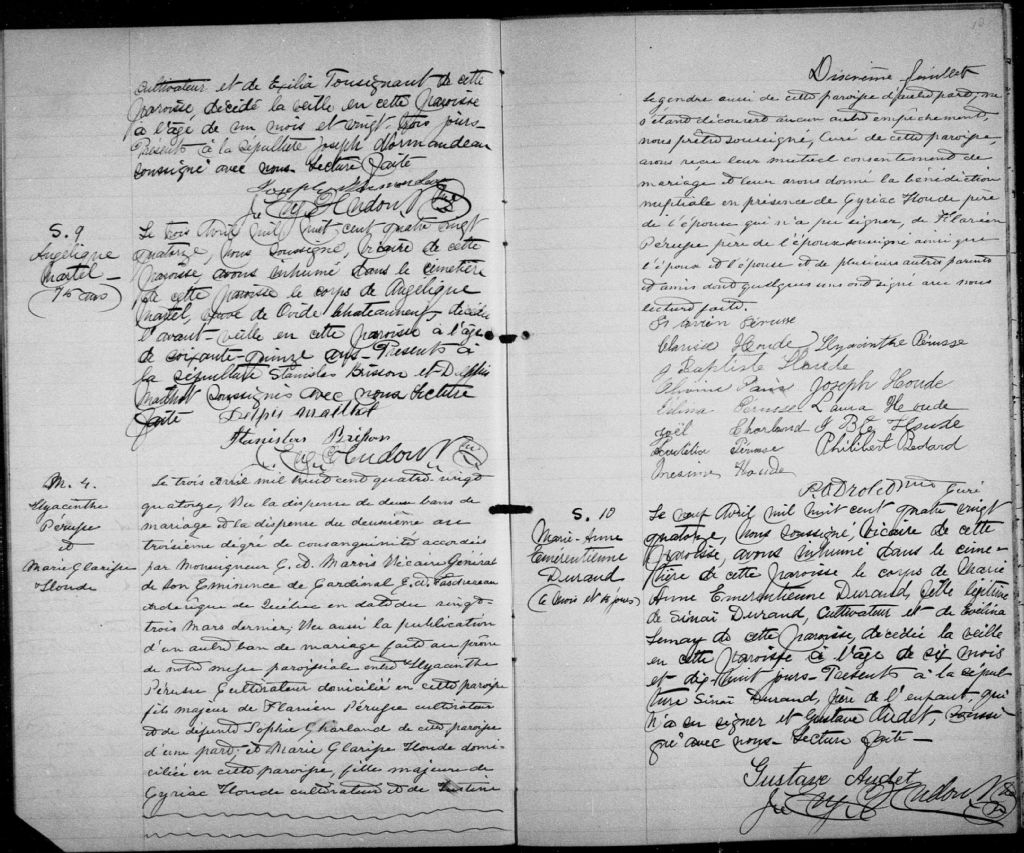 cultivateur et de Exilia Tousignant de cette
paroisse, décédé la veille en cette paroisse
à l'âge de un mois et vingt-trois jours-
Présents à la sépulture Joseph Normandeau
soussigné avec nous. Lecture faite
Joseph Normandeau
Hudon
S. 9
Angélique
Martel -
(75 ans)
Le trois Avril mil huit cent quatre vingt
quatorze, nous soussigné, vicaire de cette
paroisse, avons inhumé dans le cimetière
de cette paroisse le corps de Angélique
Martel, épouse de Ovide Chateauneuf, décédée
l'avant-veille en cette paroisse à l'âge
de soixante-quinze ans- Présents à
la sépulture Stanislas Brisson et Delphis
Mailhot soussignés avec nous Lecture
faite
Delpis Maillot
Stanislas Brisson
Hudon
M. 4.
Hyacinthe
Péruſse
et
Marie Clarisse
Houde
Le trois Avril mil huit cent quatre vingt
quatorze, Vu la dispense de deux bans de
mariage et la dispense du deuxième au
troisième dégré de consanguinité accordés
par Monsigneur C. A. Marois Vicaire Général
de son Eminence de Cardinal E. A. Taschereau
Archevêque de Québec en date du vingt-
trois Mars dernier; Vu aussi la publication
d'un autre ban de mariage faite au prône
de notre messe paroissiale entre Hyacinthe
Pérusse Cultivateur domicilié en cette paroisse
fils majeur de Flavien Pérusse cultivateur
et de défunte Sophie Charland de cette paroisse
d'une part; et Marie Clarisse Houde domi-
ciliée en cette paroisse, fille majeure de
Cyriac Houde cultivateur et de Justine
10
Dixième feuillet
Legendre aussi de cette paroisse d'autre part; ne
s'étant découvert aucun autre empêchement,
nous prêtre soussigné, Curé de cette paroisse,
avons reçu leur mutuel consentement de
mariage et leur avons donné la bénédiction
nuptiale en présence de Cyriac Houde père
de l'épouse qui n'a pu signer, de Flavien
Pérusse père de l'époux soussigné ainsi que
l'époux et l'épouse et de plusieurs autres parents
et amis dont quelques uns ont signé avec nous
lecture faite.
Flavien Pérusse
Clarisse Houde Hyacinthe Pérusse
J Baptiste Houde
Elmina Paris Joseph Houde
Pérusse Laura Houde
Joël Charland J Bte Houde
Pérusse Philibert Bedard
Onesime Houde
Ptre Curé
S. 10
Marie-Anne
Emérentienne
Durand
(6 mois et 18 jours)
Le neuf Avril mil huit cent quatre vingt
quatorze, nous soussigné, vicaire de cette
paroisse, avons inhumé dans le cime-
tière de cette paroisse le corps de Marie
Anne Emerentienne Durand, fille légitime
de Sinaï Durand, cultivateur et de Evélina
Lemay de cette paroisse, décédée la veille
en cette paroisse à l'âge de six mois
et dix-huit jours- Présents à la sépul
ture Sinaï Durand, père de l'enfant, qui
n'a su signer et Gustave Audet, soussi
gné avec nous- Lecture faite -
Gustave Audet
Hudon